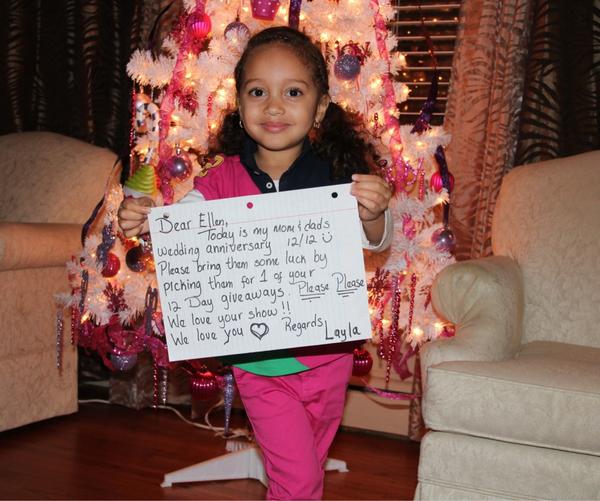 Dear Ellen,
Today is my mom & dads
wedding anniversary 12/12
Please bring them some luck by
picking them for 1 of your
12 Day giveaways. Please Please
We love your show!!
We love you Regards Layla